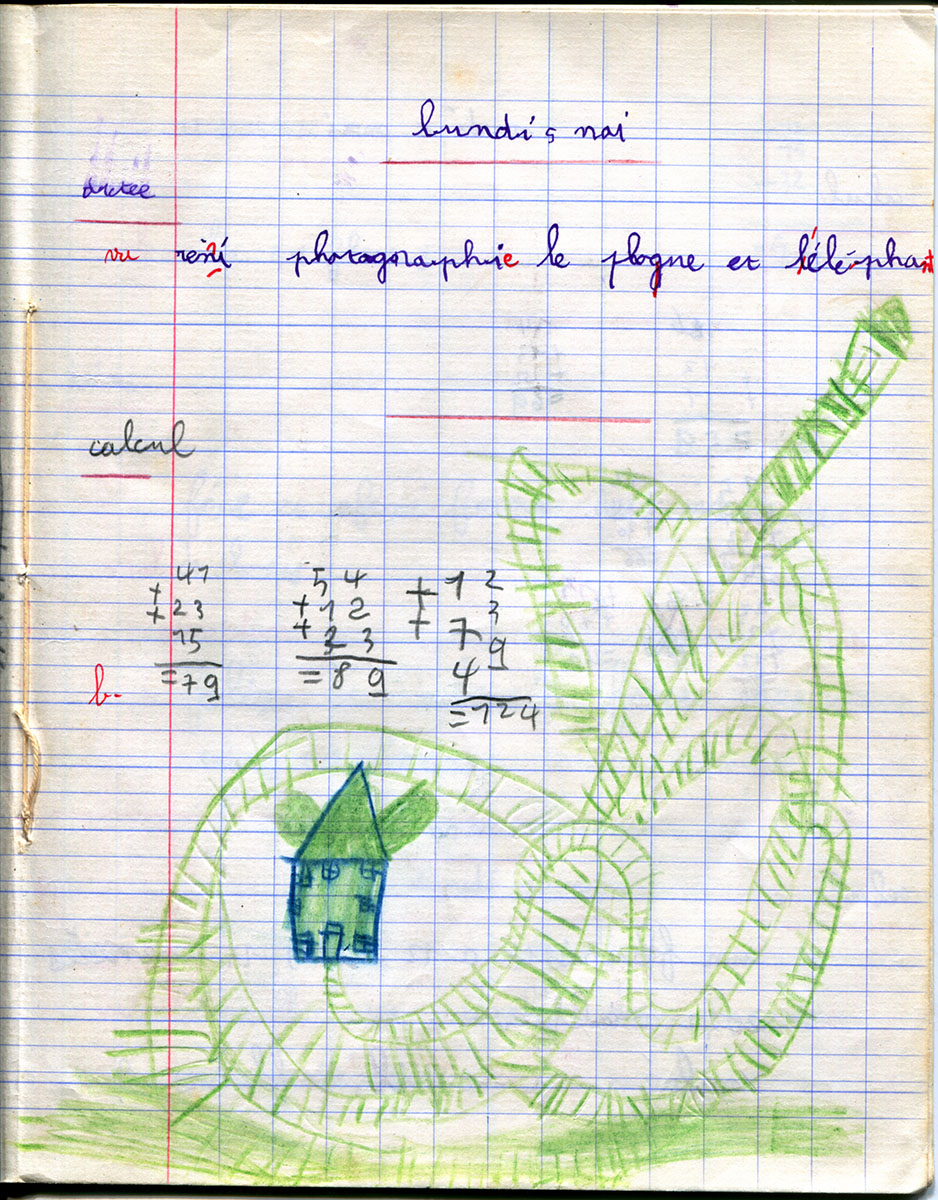 lundi 5 mai
dictée
vu rémi photographie le plogne et l'éléphant
calcul
41
+ 23
+ 15
= 79
54
+ 12
+ 23
= 89
+ 12
+ 3
79
4
= 124
b.